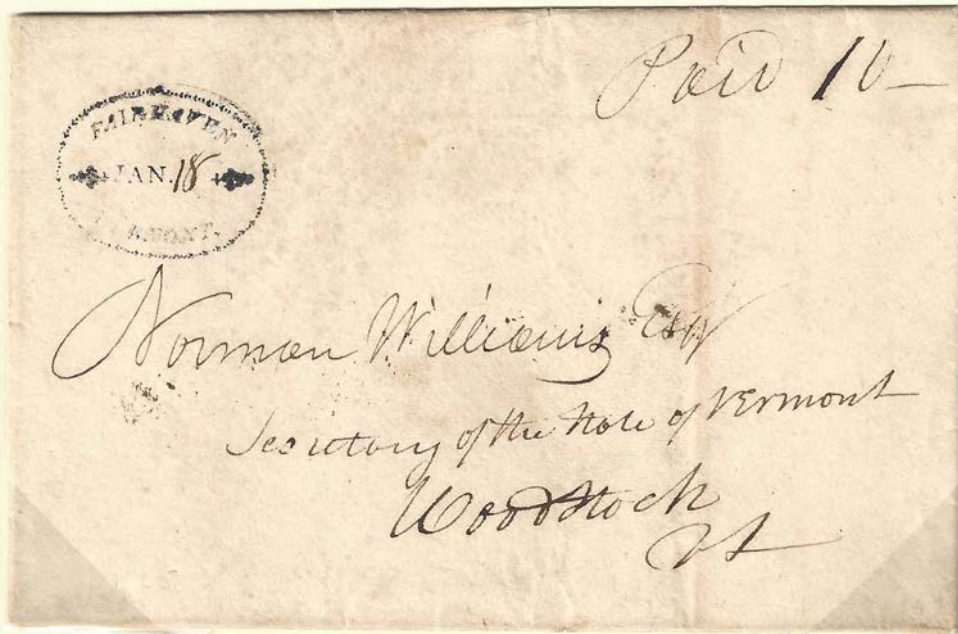 Paid 10
FAIRHAVEN
JAN. 18
VERMONT.
Norman Williams Esqr
Secretary of the State of Vermont
Woodstock
Vt